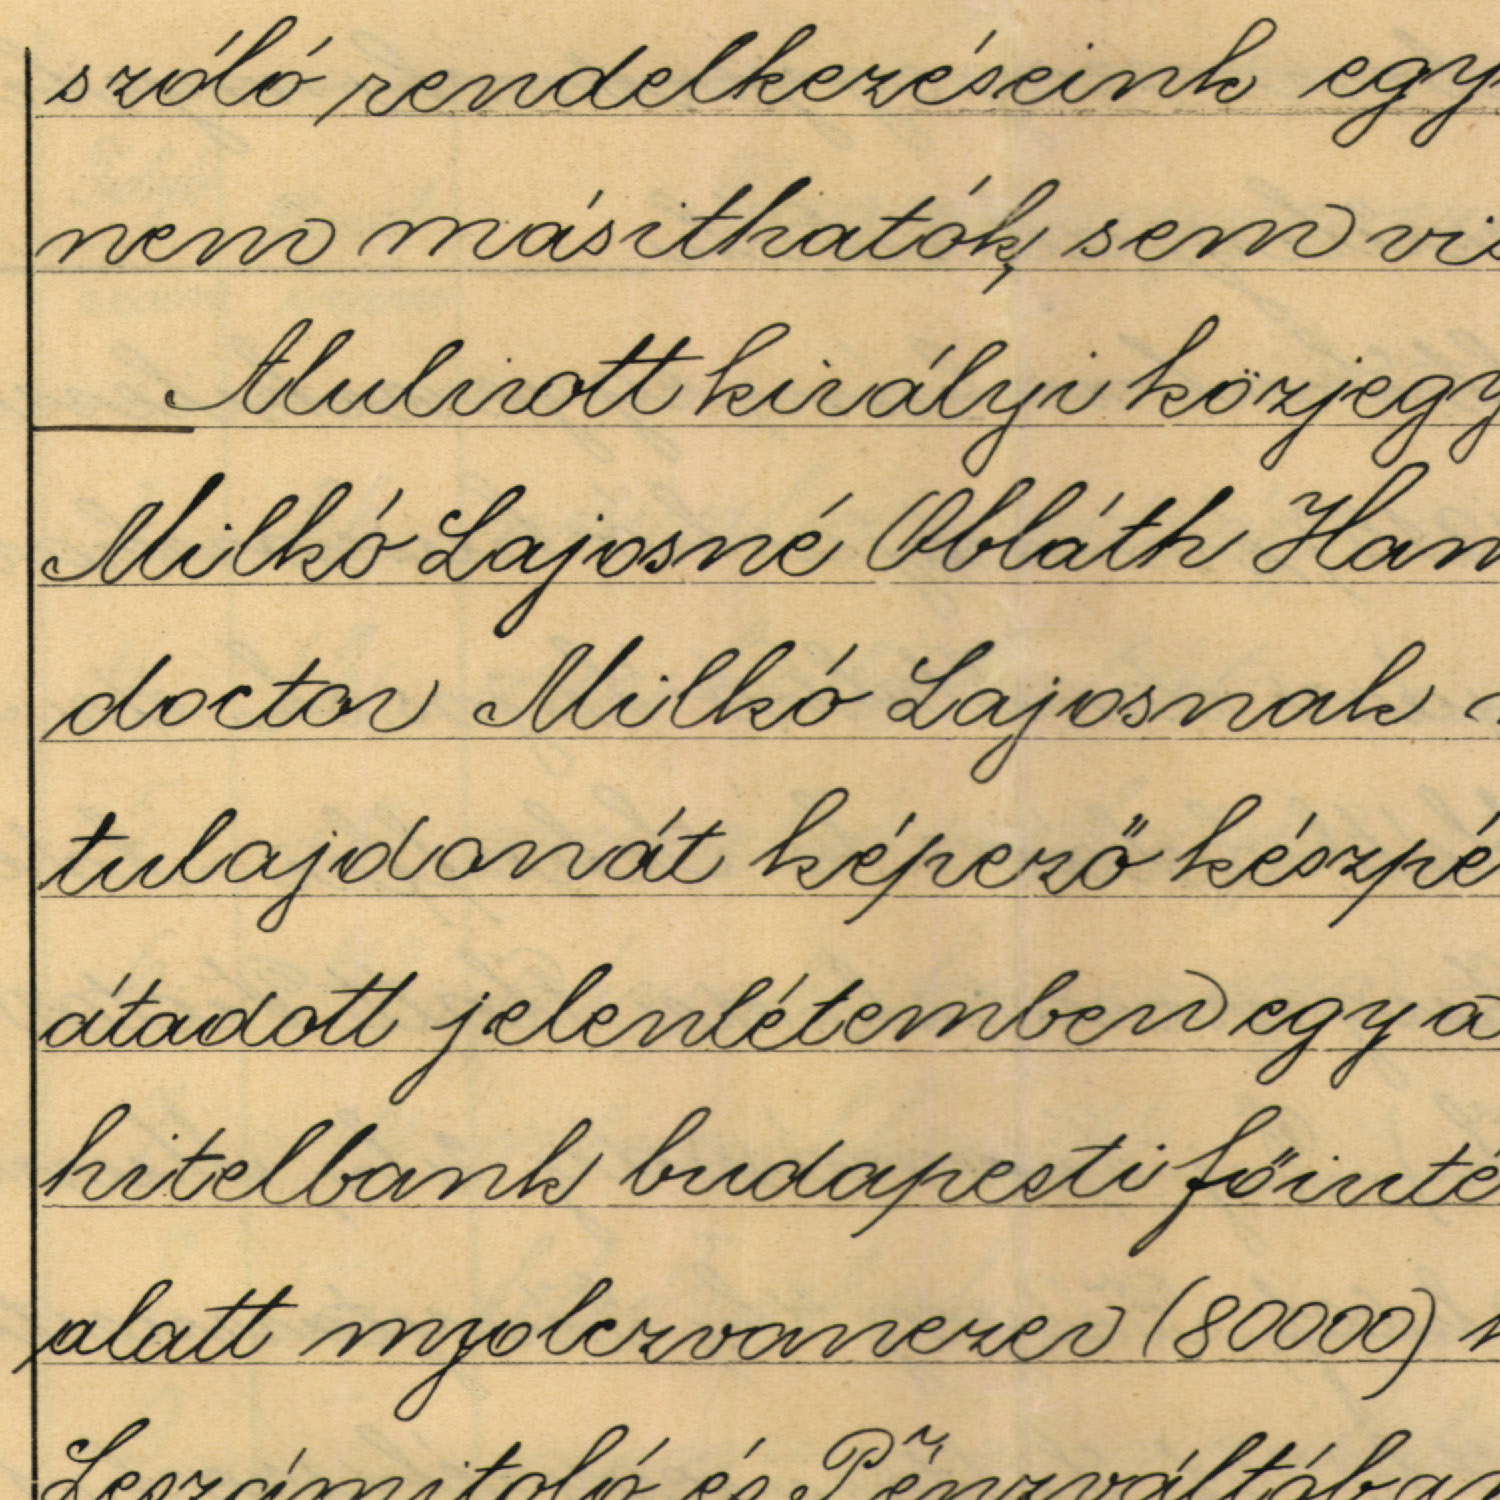 szóló rendelkezéseink egy
nem másithatók, sem vis
Alulirott királyi közjegy
Milkó Lajosné Obláth Ham
doctor Milkó Lajosnak
tulajdonát képező készpé
átadott jelenlétemben egy a
hitelbank budapesti főinté
alatt nyolczvanezer (80000)
Leszámitoló és Pénzváltóban